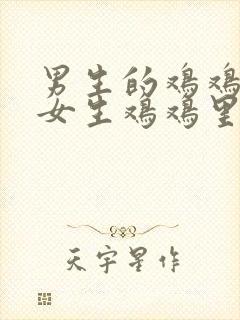 男生的鸡鸡
女生鸡鸡里
天宇星作